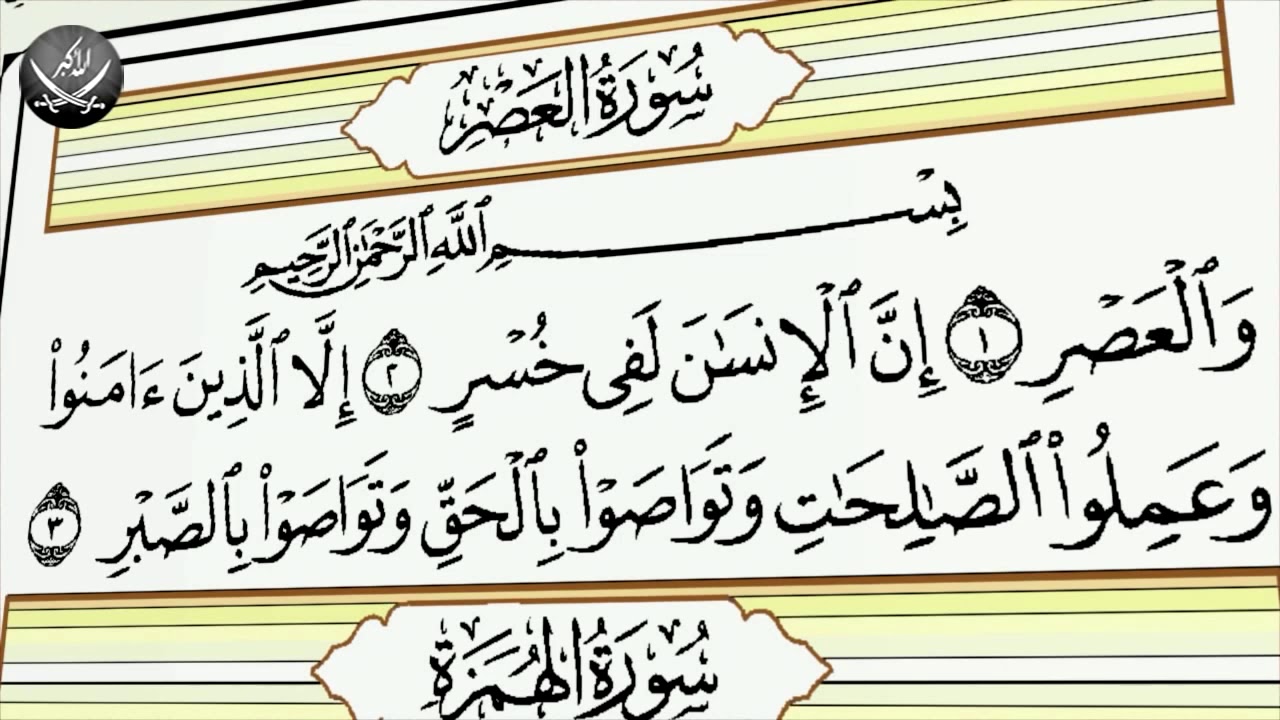 الله أكبر
سُورَةُ العَصْرِ
بِسْمِ ٱللَّهِ ٱلرَّحْمَٰنِ ٱلرَّحِيمِ
وَٱلْعَصْرِ ١ إِنَّ ٱلْإِنسَٰنَ لَفِى خُسْرٍ ٢ إِلَّا ٱلَّذِينَ ءَامَنُوا۟
وَعَمِلُوا۟ ٱلصَّٰلِحَٰتِ وَتَوَاصَوْا۟ بِٱلْحَقِّ وَتَوَاصَوْا۟ بِٱلصَّبْرِ ٣
سُورَةُ الهُمَزَةِ